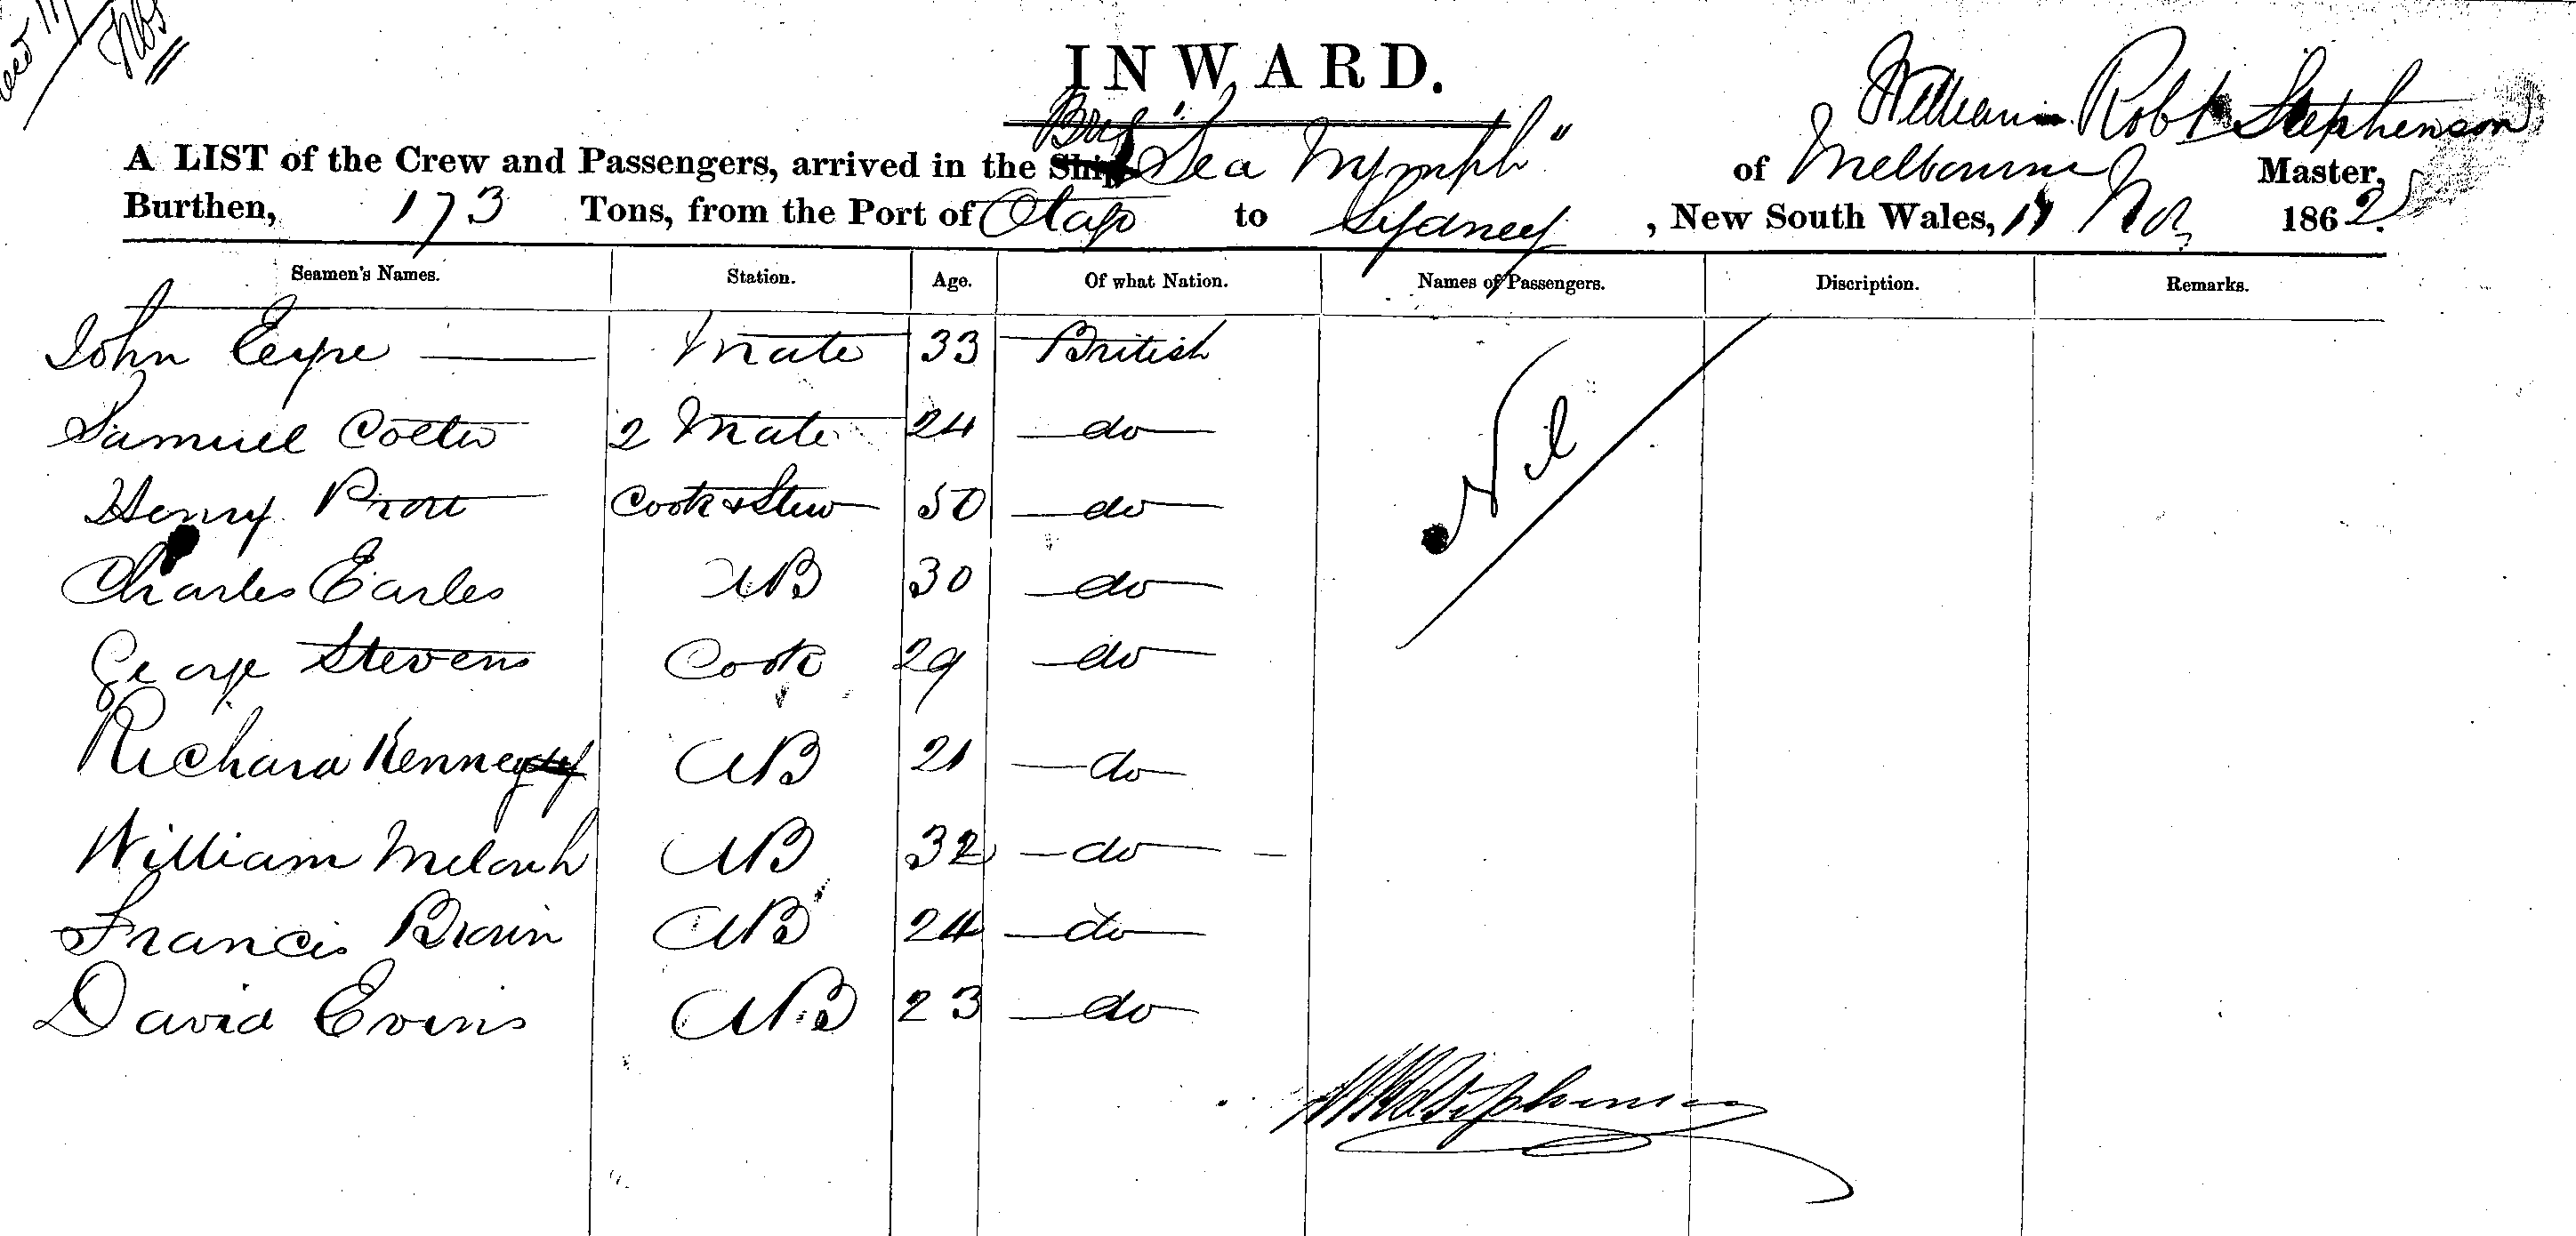 INWARD.
William Robt Stephenson
A LIST of the Crew and Passengers, arrived in the Ship Brig "Sea Nymph" of Melbourne Master,
Burthen, 173 Tons, from the Port of Otago to Sydney, New South Wales, Nov 1862.
Seamen's Names. Station. Age. Of what Nation. Names of Passengers. Discription. Remarks.
John Eyre Mate 33 British Nil
Samuel 2 Mate 24 do
Henry Cook & Stew 50 do
Charles Earles AB 30 do
George Stevens Cook 29 do
Richard Kenney AB 21 do
William AB 32 do
Francis Brown AB 24 do
David Evins AB 23 do
WR Stephenson